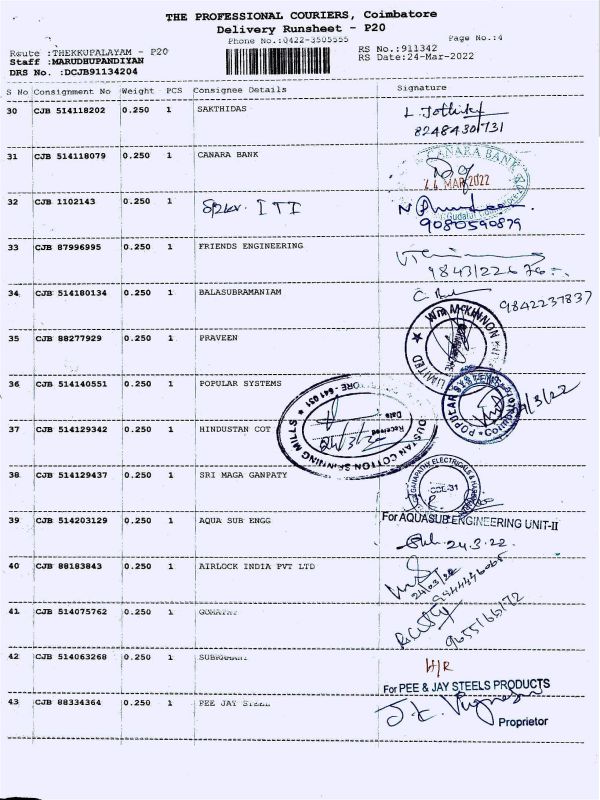 THE PROFESSIONAL COURIERS, Coimbatore
Delivery Runsheet - P20
Phone No.:0422-3505555 Page No.:4
Route :THEKKUPALAYAM - P20 RS No.:911342
Staff :MARUDHUPANDIYAN RS Date:24-Mar-2022
DRS No. :DCJB91134204
S No Consignment No Weight PCS Consignee Details Signature
30 CJB 514118202 0.250 1 SAKTHIDAS L. Jothika
8248430731
31 CJB 514118079 0.250 1 CANARA BANK CANARA BANK
24 MAR 2022
32 CJB 1102143 0.250 1 ITI
9080590879
33 CJB 87996995 0.250 1 FRIENDS ENGINEERING
9843122676
34 CJB 514180134 0.250 1 BALASUBRAMANIAM
9842237837
35 CJB 88277929 0.250 1 PRAVEEN McKINNON
LIMITED
36 CJB 514140551 0.250 1 POPULAR SYSTEMS POPULAR SYSTEMS
/3/22
37 CJB 514129342 0.250 1 HINDUSTAN COT DUSTAN COTTON SPINNING MILLS
ORE - 641 031
Received
Date
24/3/22
38 CJB 514129437 0.250 1 SRI MAGA GANPATY GANAPATHY ELECTRICALS &
CBE-31
39 CJB 514203129 0.250 1 AQUA SUB ENGG For AQUASUB ENGINEERING UNIT-II
24.3.22.
40 CJB 88183843 0.250 1 AIRLOCK INDIA PVT LTD
24/03/22
41 CJB 514075762 0.250 1 GOMATHY
9655166172
42 CJB 514063268 0.250 1 SUBRAMANI H/R
For PEE & JAY STEELS PRODUCTS
43 CJB 88334364 0.250 1 PEE JAY STEEL
Proprietor